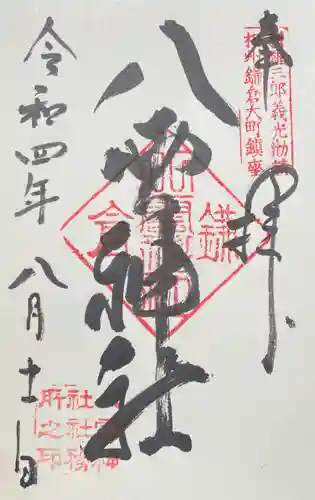 奉拝
新羅三郎義光勧請
相州鎌倉大町鎮座
八雲神社
鎌倉
祇園
令和四年八月十一日
社社務
府之印